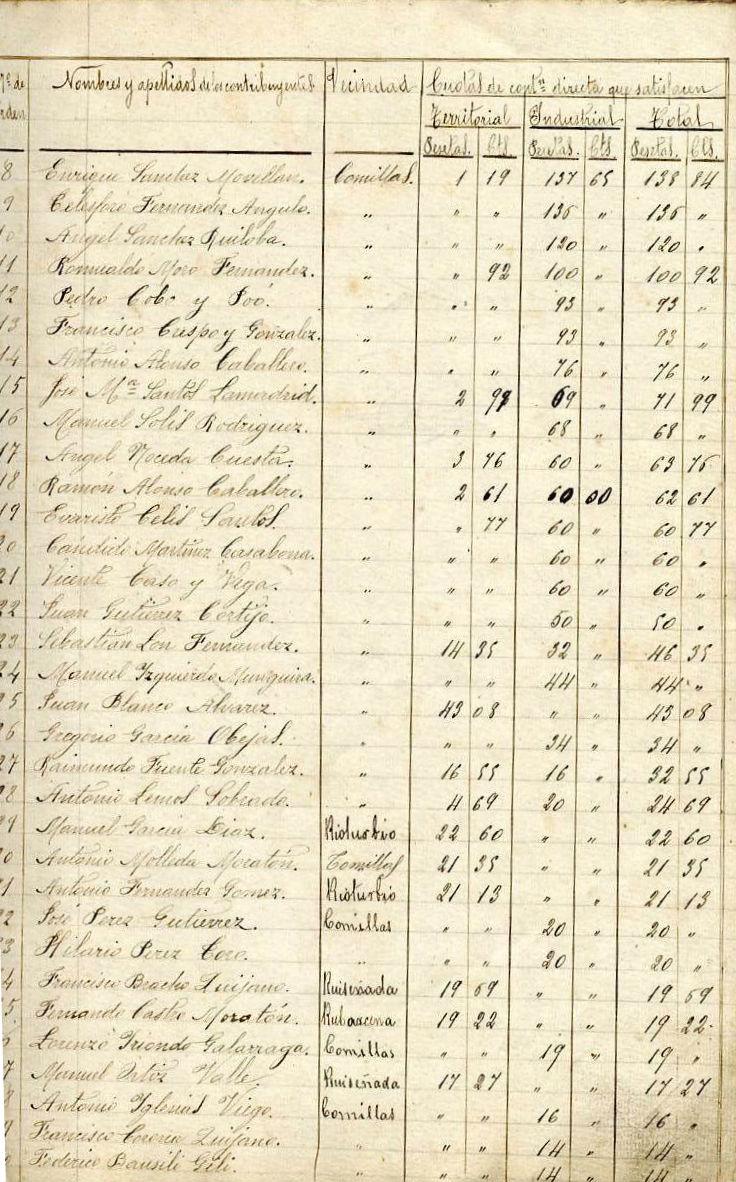 Nº de orden Nombres y apellidos de los contribuyentes Vecindad Cuotas de contⁿ directa que satisfacen
Territorial Industrial Total
Pesetas. Cts. Pesetas. Cts. Pesetas. Cts.
8 Enrique Sanchez Movellan. Comillas. 1 19 137 65 138 84
9 Celesforo Fernandez Angulo. " " " 136 " 136 "
10 Angel Sanchez Ruiloba. " " " 120 " 120 "
11 Romualdo Moro Fernandez. " " 92 100 " 100 92
12 Pedro Cobo y Poó. " " " 93 " 93 "
13 Francisco Crespo y Gonzalez. " " " 93 " 93 "
14 Antonio Alonso Caballero. " " " 76 " 76 "
15 José Mª Santos Lamadrid. " 2 99 69 " 71 99
16 Manuel Solis Rodriguez. " " " 68 " 68 "
17 Angel Noceda Cuesta. " 3 76 60 " 63 76
18 Ramón Alonso Caballero. " 2 61 60 00 62 61
19 Evaristo Celis Santos. " " 77 60 " 60 77
20 Candido Martinez Casabona. " " " 60 " 60 "
21 Vicente Caso y Vega. " " " 60 " 60 "
22 Juan Gutierrez Cortijo. " " " 50 " 50 "
23 Sebastian Lon Fernandez. " 14 35 32 " 46 35
24 Manuel Izquierdo Munguira. " " " 44 " 44 "
25 Juan Blanco Alvarez. " 43 08 " " 43 08
26 Gregorio Garcia Obejas. " " " 34 " 34 "
27 Raimundo Fuente Gonzalez. " 16 55 16 " 32 55
28 Antonio Lemos Sobrado. " 4 69 20 " 24 69
29 Manuel Garcia Diaz. Rioturbio 22 60 " " 22 60
30 Antonio Molleda Moratón. Comillas 21 35 " " 21 35
31 Antonio Fernandez Gomez. Rioturbio 21 13 " " 21 13
32 José Perez Gutierrez. Comillas " " 20 " 20 "
33 Hilario Perez Coro. " " " 20 " 20 "
34 Francisco Bracho Quijano. Ruiseñada 19 69 " " 19 69
35. Fernando Castro Moratón. Rubarcena 19 22 " " 19 22
6 Lorenzo Iriondo Galarraga. Comillas " " 19 " 19 "
7 Manuel Ortiz Valle. Ruiseñada 17 27 " " 17 27
8 Antonio Iglesias Viego. Comillas " " 16 " 16 "
9 Francisco Quijano. " " " 14 " 14 "
Federico Bausili Gili. " " " 14 " 14 "